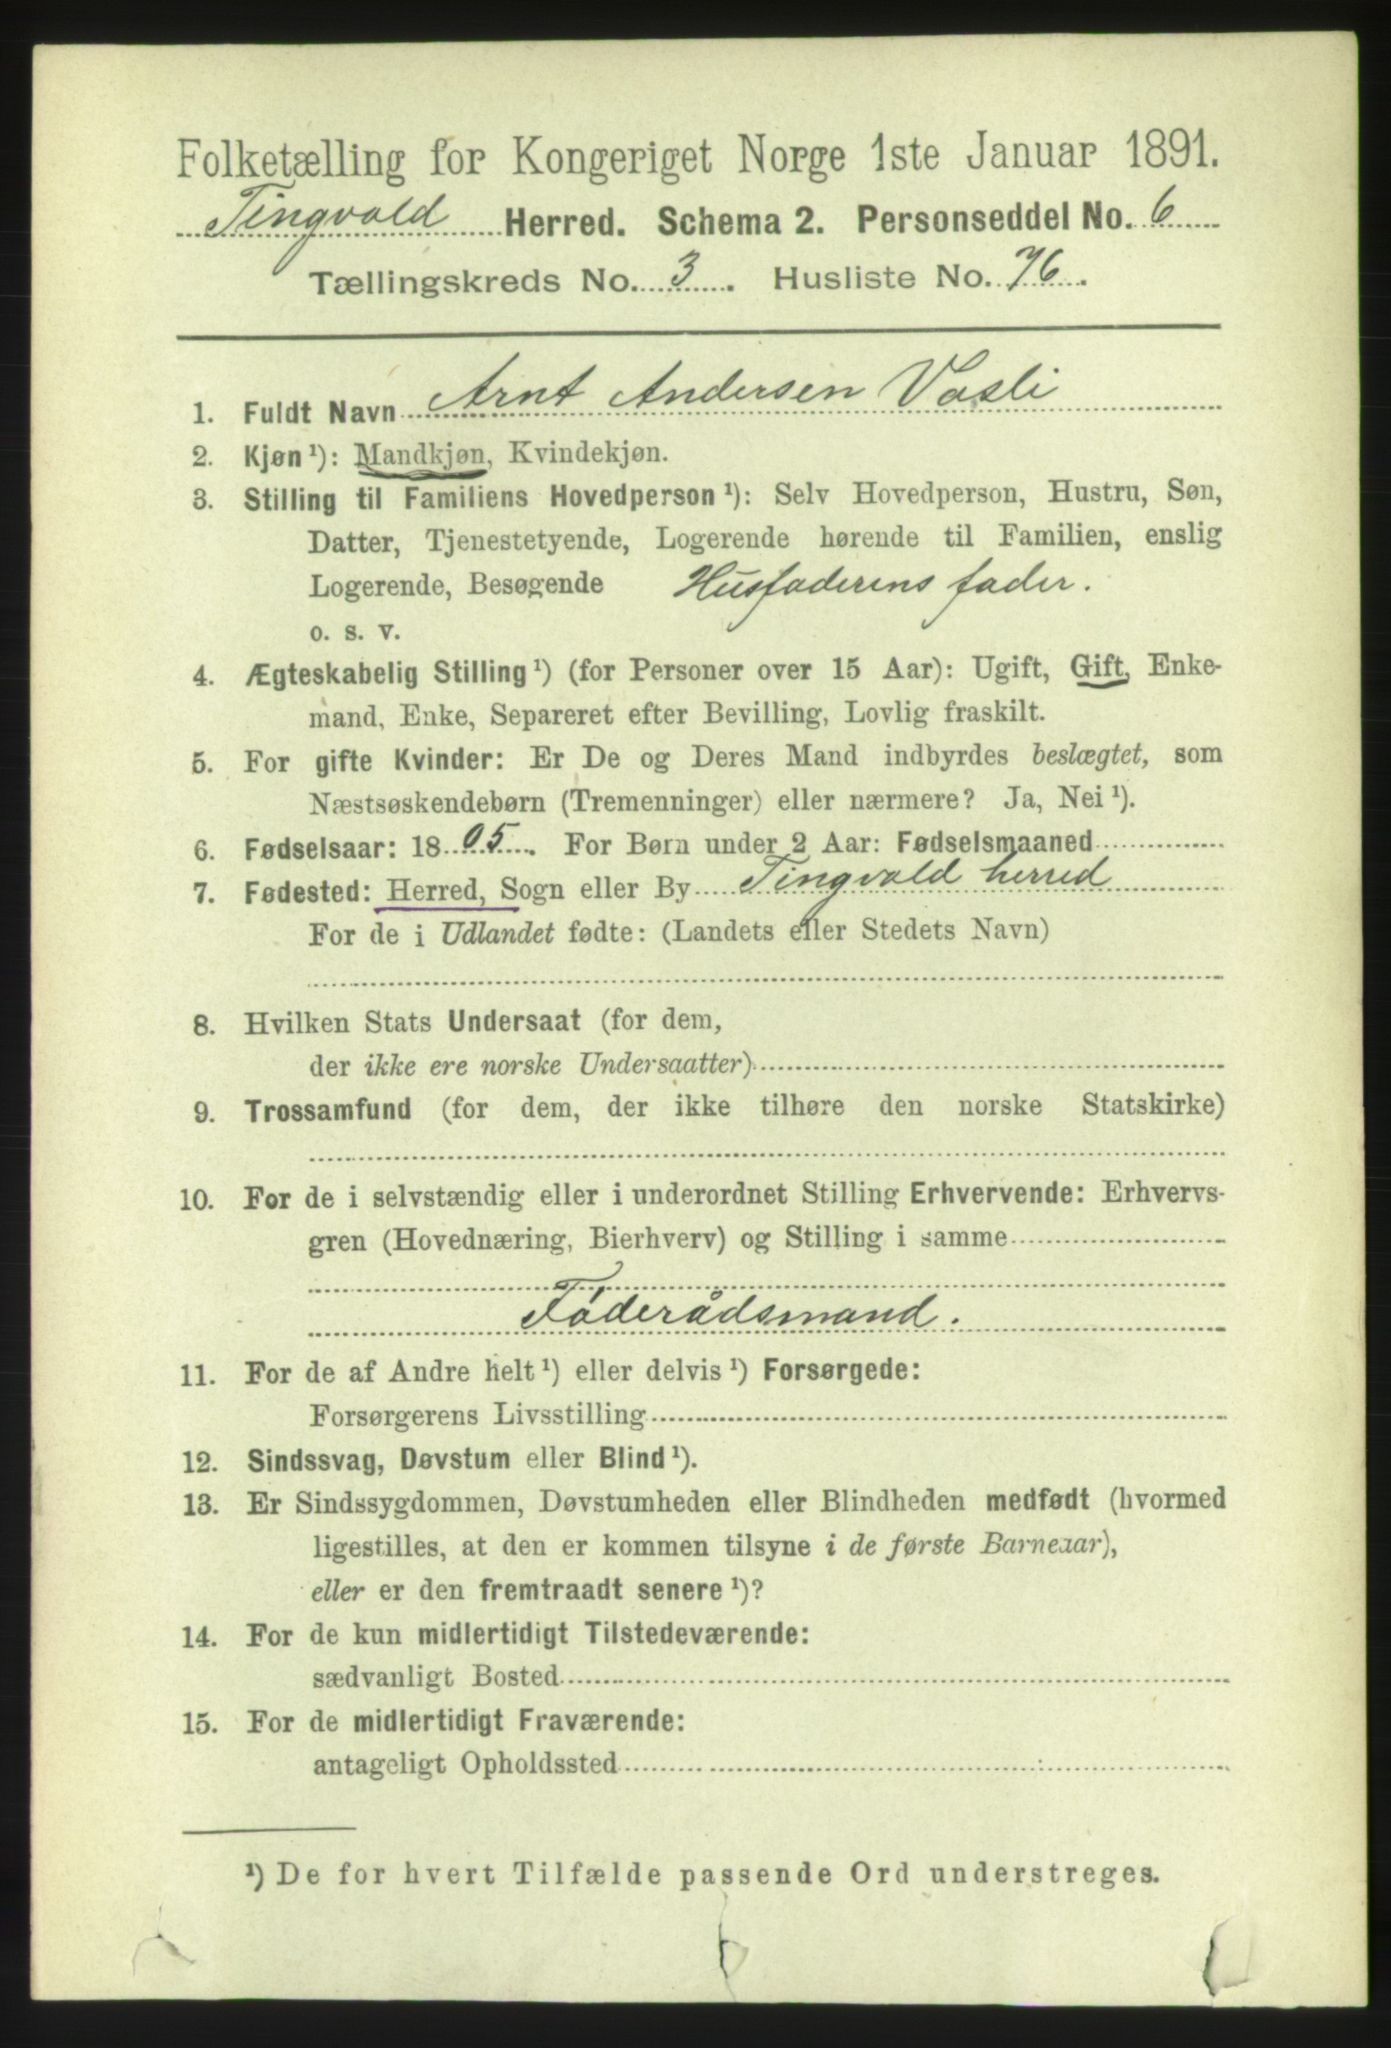 Folketælling for Kongeriget Norge 1ste Januar 1891.
Tingvold Herred. Schema 2. Personseddel No. 6
Tællingskreds No. 3. Husliste No. 76.
1. Fuldt Navn Arnt Andersen Vasli
2. Kjøn ¹): Mandkjøn, Kvindekjøn.
3. Stilling til Familiens Hovedperson ¹): Selv Hovedperson, Hustru, Søn,
Datter, Tjenestetyende, Logerende hørende til Familien, enslig
Logerende, Besøgende Husfaderens fader.
o. s. v.
4. Ægteskabelig Stilling ¹) (for Personer over 15 Aar): Ugift, Gift, Enke-
mand, Enke, Separeret efter Bevilling, Lovlig fraskilt.
5. For gifte Kvinder: Er De og Deres Mand indbyrdes beslægtet, som
Næstsøskendebørn (Tremenninger) eller nærmere? Ja, Nei ¹).
6. Fødselsaar: 1805. For Børn under 2 Aar: Fødselsmaaned
7. Fødested: Herred, Sogn eller By Tingvold herred
For de i Udlandet fødte: (Landets eller Stedets Navn)
8. Hvilken Stats Undersaat (for dem,
der ikke ere norske Undersaatter)
9. Trossamfund (for dem, der ikke tilhøre den norske Statskirke)
10. For de i selvstændig eller i underordnet Stilling Erhvervende: Erhvervs-
gren (Hovednæring, Bierhverv) og Stilling i samme
Föderådsmand.
11. For de af Andre helt ¹) eller delvis ¹) Forsørgede:
Forsørgerens Livsstilling
12. Sindssvag, Døvstum eller Blind ¹).
13. Er Sindssygdommen, Døvstumheden eller Blindheden medfødt (hvormed
ligestilles, at den er kommen tilsyne i de første Barneaar),
eller er den fremtraadt senere ¹)?
14. For de kun midlertidigt Tilstedeværende:
sædvanligt Bosted
15. For de midlertidigt Fraværende:
antageligt Opholdssted
¹) De for hvert Tilfælde passende Ord understreges.